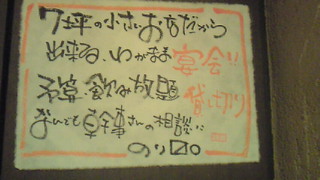 7坪の小さいお店だから
出来る、わがまま宴会!!
予算・飲み放題 貸し切り
なんでも幹事さんの相談に
のり〼。